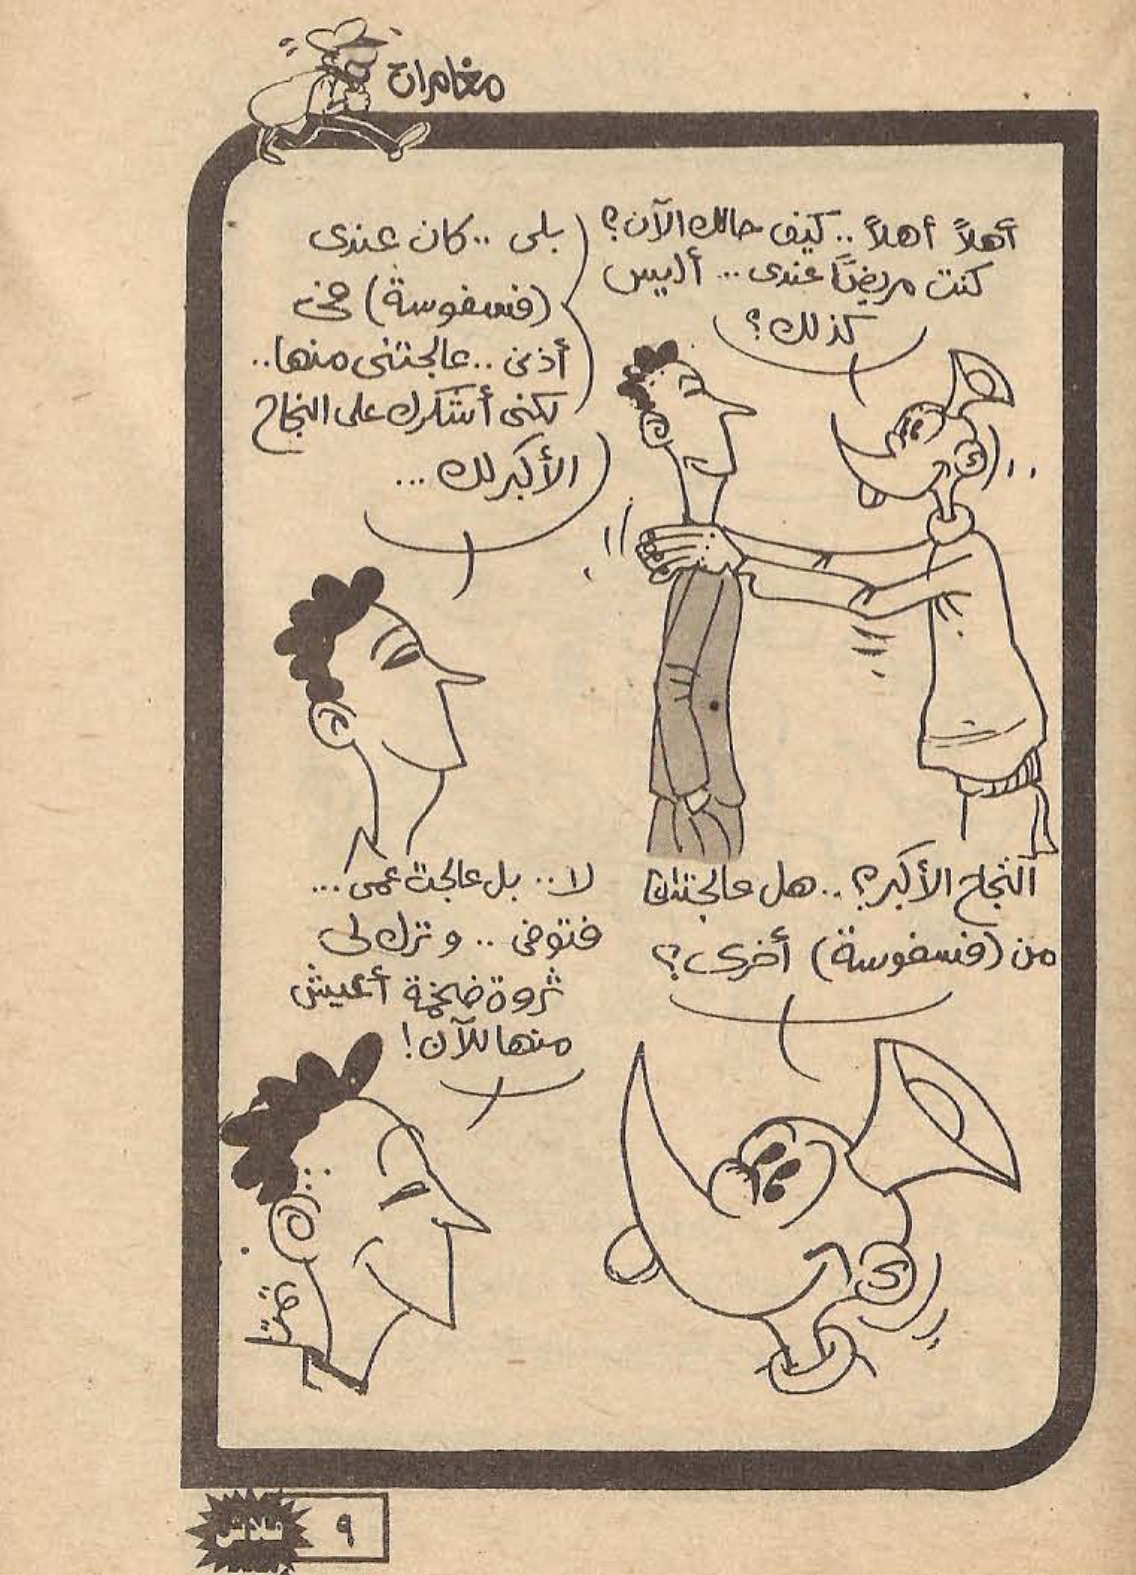 مغامرات
أهلاً أهلاً .. كيف حالك الآن؟
كنت مريضًا عندى ... أليس
كذلك؟
بلى .. كان عندى
(فسفوسة) فى
أذنى .. عالجتنى منها ..
لكنى أشكرك على النجاح
الأكبر لك ...
النجاح الأكبر؟ .. هل عالجتك
من (فسفوسة) أخرى؟
لا .. بل عالجت عمى ...
فتوفى .. و ترك لى
ثروة ضخمة أعيش
منها للآن!
٩
فلاش